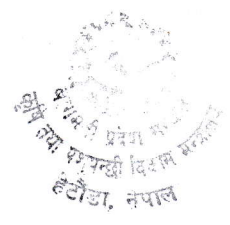 प्रदेश
कृषि तथा पशुपन्छी विकास मन्त्रालय
हेटौंडा, नेपाल